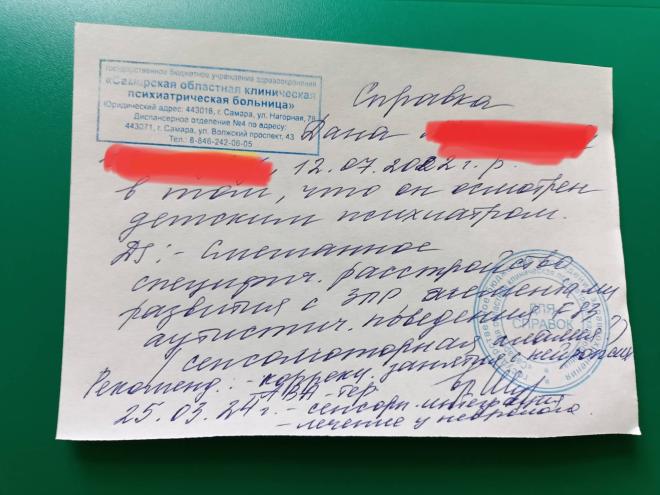 государственное бюджетное учреждение здравоохранения
«Самарская областная клиническая
психиатрическая больница»
Юридический адрес: 443016, г. Самара, ул. Нагорная, 78
Диспансерное отделение №4 по адресу:
443071, г. Самара, ул. Волжский проспект, 43
Тел.: 8-846-242-06-05
Справка
Дана
12.07.2022 г.р.
в том, что он осмотрен
детским психиатром.
Ds: - Смешанное
специфич. расстройство
развития с ЗПР элементами
аутистич. поведения F83
сенсомоторная алалия
ДЛЯ
СПРАВОК
Рекоменд: - коррекц. занятия с нейропсих
- АВА-тер
25.03.24 г. - сенсорн. интеграция
- лечение у невролога.